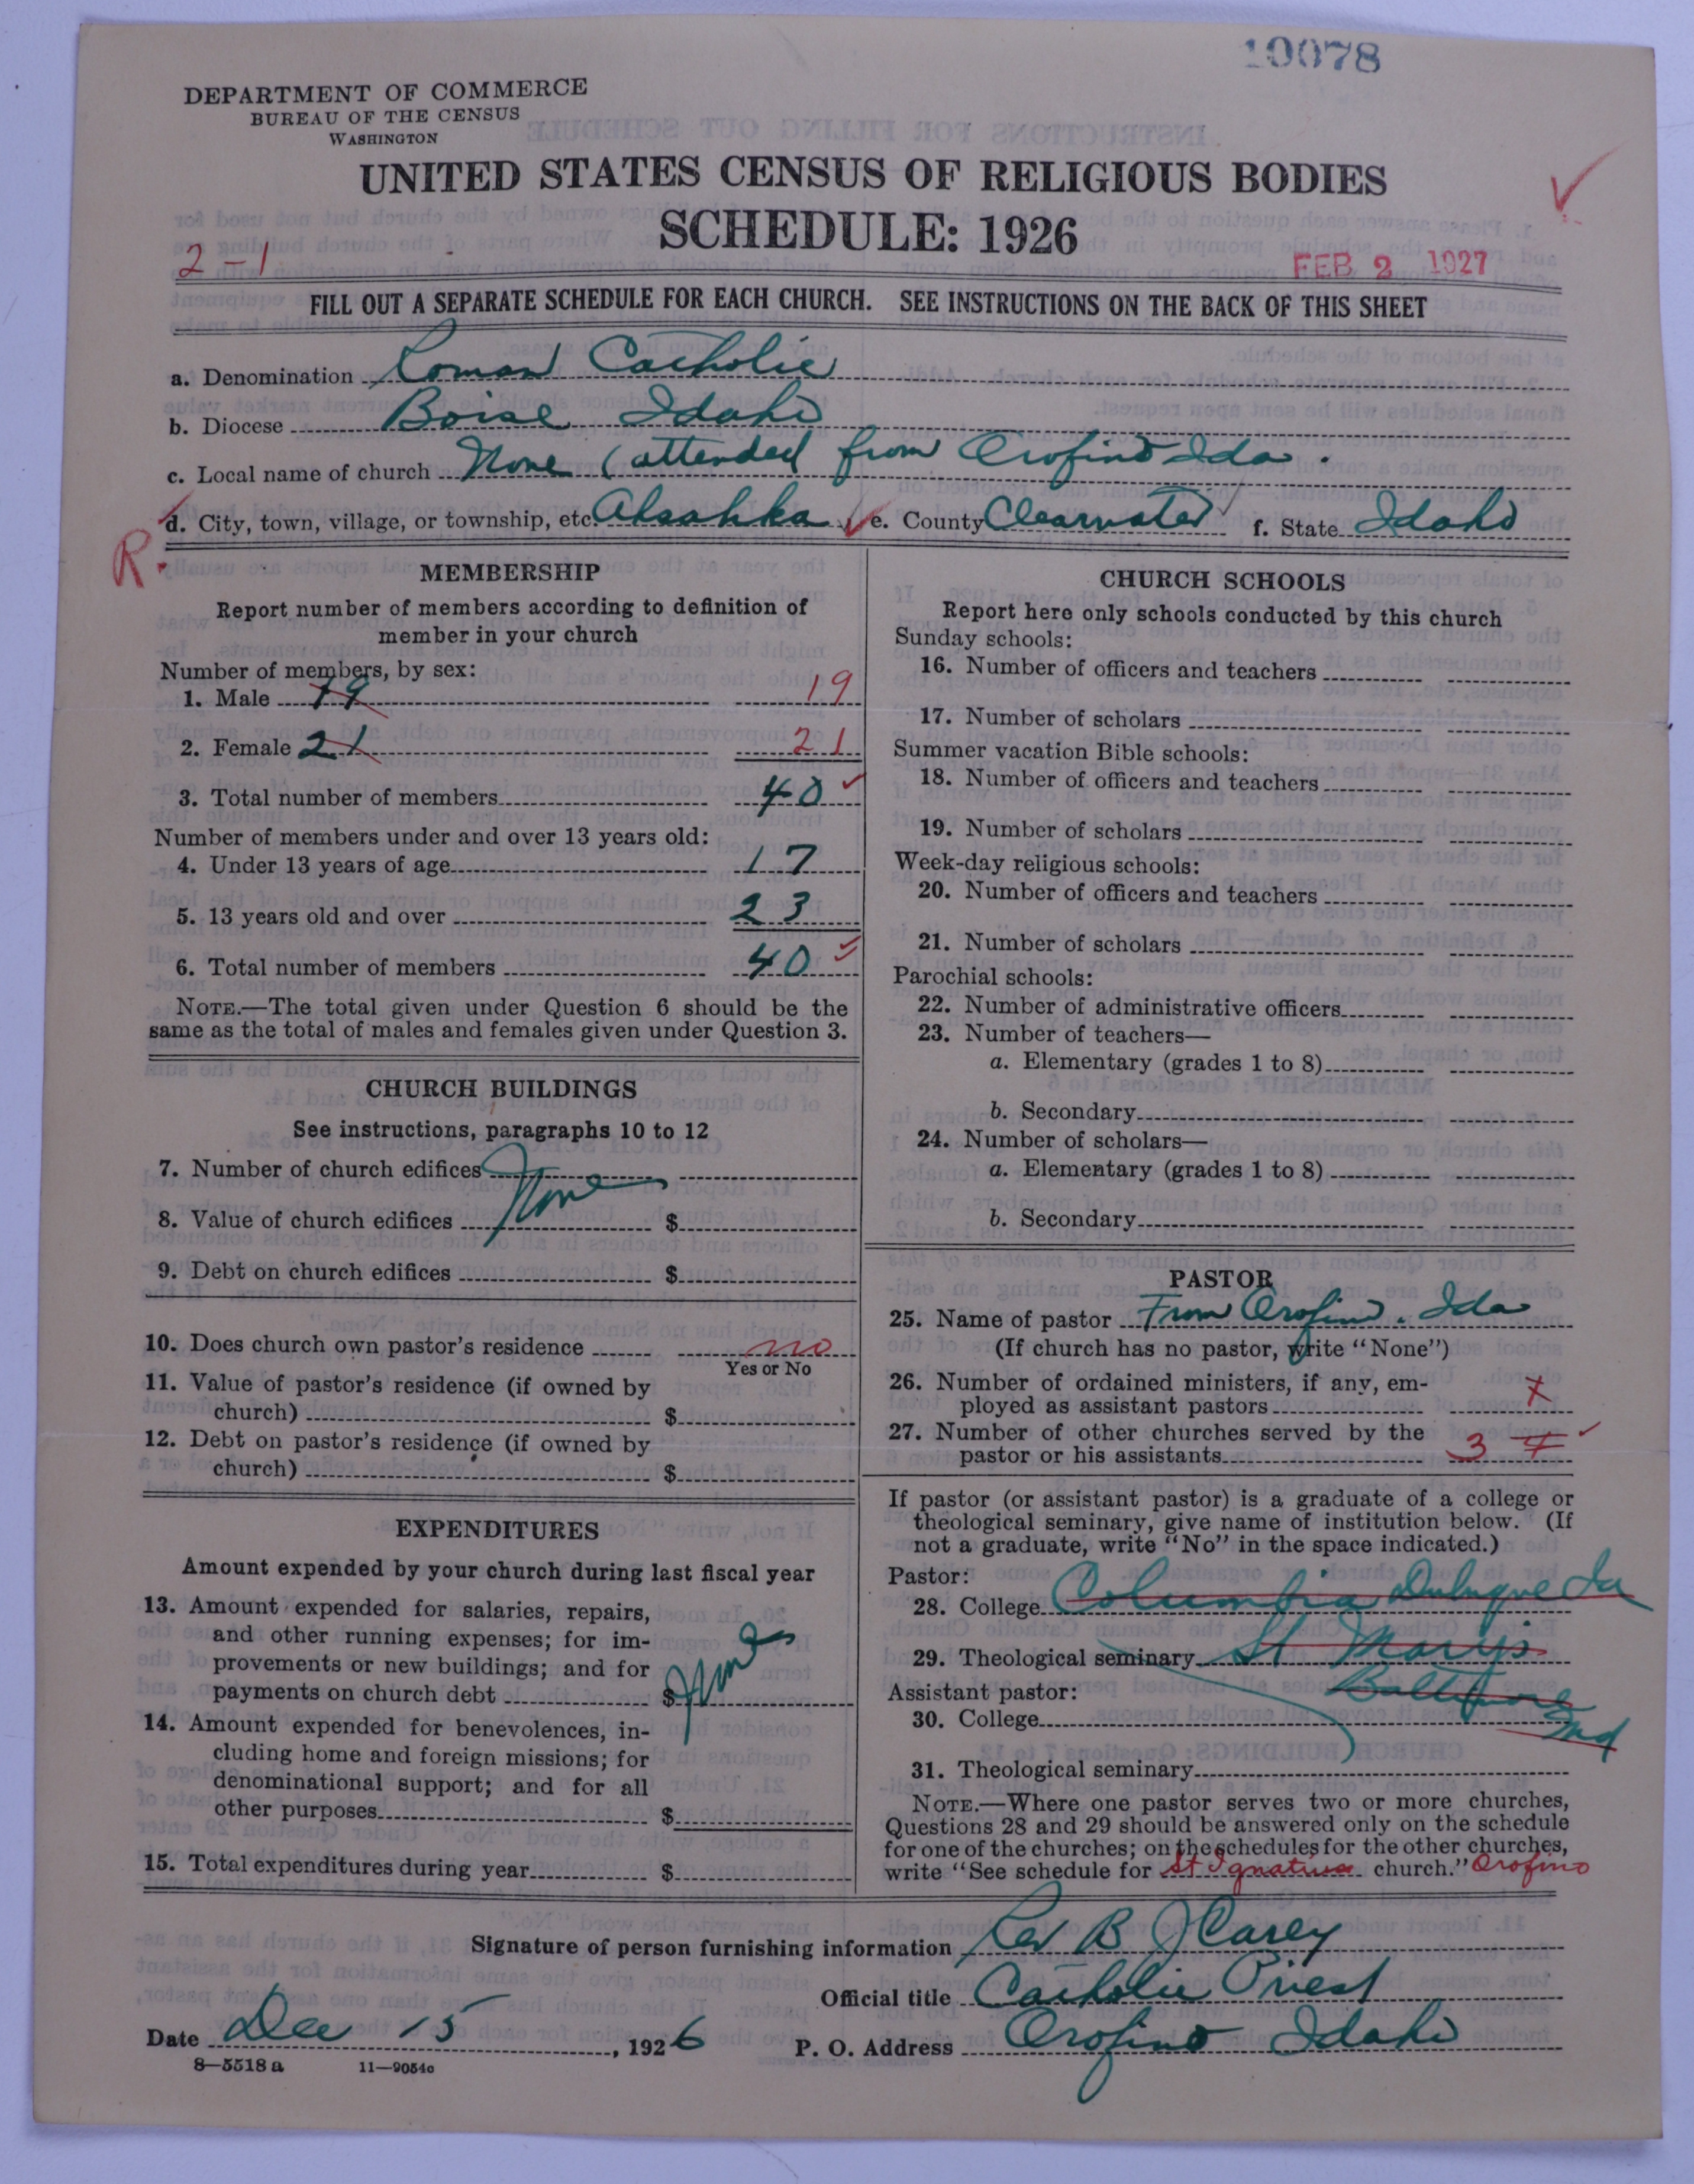 10078
DEPARTMENT OF COMMERCE
BUREAU OF THE CENSUS
WASHINGTON
UNITED STATES CENSUS OF RELIGIOUS BODIES
SCHEDULE: 1926
2-1
FEB 2 1927
FILL OUT A SEPARATE SCHEDULE FOR EACH CHURCH. SEE INSTRUCTIONS ON THE BACK OF THIS SHEET
a. Denomination Roman Catholic
b. Diocese Boise Idaho
c. Local name of church None (attended from Orofino Ida.
d. City, town, village, or township, etc. Ahsahka e. County Clearwater f. State Idaho
R.
MEMBERSHIP
Report number of members according to definition of
member in your church
Number of members, by sex:
1. Male 19 19
2. Female 21 21
3. Total number of members 40
Number of members under and over 13 years old:
4. Under 13 years of age 17
5. 13 years old and over 23
6. Total number of members 40
NOTE.—The total given under Question 6 should be the
same as the total of males and females given under Question 3.
CHURCH BUILDINGS
See instructions, paragraphs 10 to 12
7. Number of church edifices None
8. Value of church edifices $
9. Debt on church edifices $
10. Does church own pastor's residence no
Yes or No
11. Value of pastor's residence (if owned by
church) $
12. Debt on pastor's residence (if owned by
church) $
EXPENDITURES
Amount expended by your church during last fiscal year
13. Amount expended for salaries, repairs,
and other running expenses; for im-
provements or new buildings; and for
payments on church debt $ None
14. Amount expended for benevolences, in-
cluding home and foreign missions; for
denominational support; and for all
other purposes $
15. Total expenditures during year $
CHURCH SCHOOLS
Report here only schools conducted by this church
Sunday schools:
16. Number of officers and teachers
17. Number of scholars
Summer vacation Bible schools:
18. Number of officers and teachers
19. Number of scholars
Week-day religious schools:
20. Number of officers and teachers
21. Number of scholars
Parochial schools:
22. Number of administrative officers
23. Number of teachers—
a. Elementary (grades 1 to 8)
b. Secondary
24. Number of scholars—
a. Elementary (grades 1 to 8)
b. Secondary
PASTOR
25. Name of pastor From Orofino. Ida
(If church has no pastor, write "None")
26. Number of ordained ministers, if any, em-
ployed as assistant pastors x
27. Number of other churches served by the
pastor or his assistants 3
If pastor (or assistant pastor) is a graduate of a college or
theological seminary, give name of institution below. (If
not a graduate, write "No" in the space indicated.)
Pastor:
28. College Columbia Dubuque Ia
29. Theological seminary St Marys
Assistant pastor: Baltimore
30. College Md
31. Theological seminary
NOTE.—Where one pastor serves two or more churches,
Questions 28 and 29 should be answered only on the schedule
for one of the churches; on the schedules for the other churches,
write "See schedule for St Ignatius church." Orofino
Signature of person furnishing information Rev B J Carey
Official title Catholic Priest
Date Dec 15, 1926 P. O. Address Orofino Idaho
8—5518 a 11—9054c